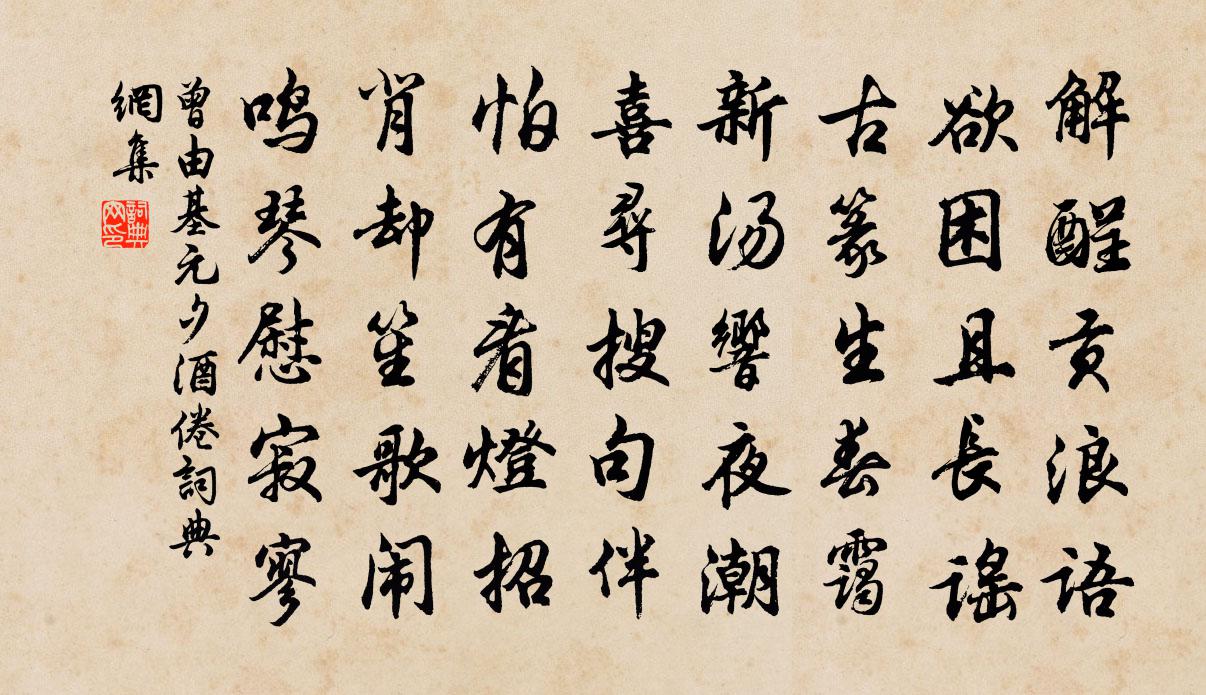 解酲贡浪语
欲困且長谣
古篆生春靄
新汤響夜潮
喜尋搜句伴
怕有看燈招
肖却笙歌闹
鸣琴慰寂寥
曾由基元夕酒倦詞典
網集
詞典
网印